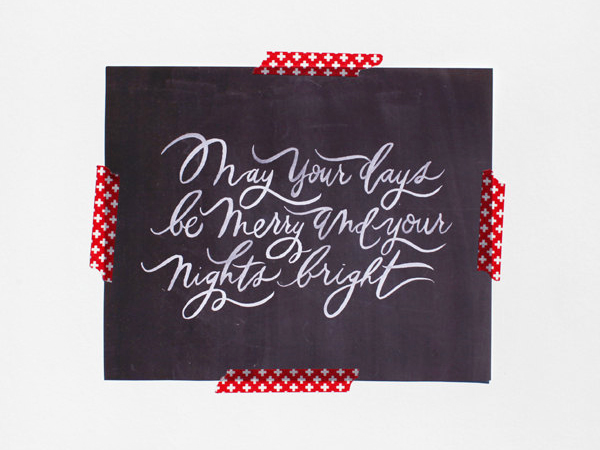 May your days
be merry and your
nights bright